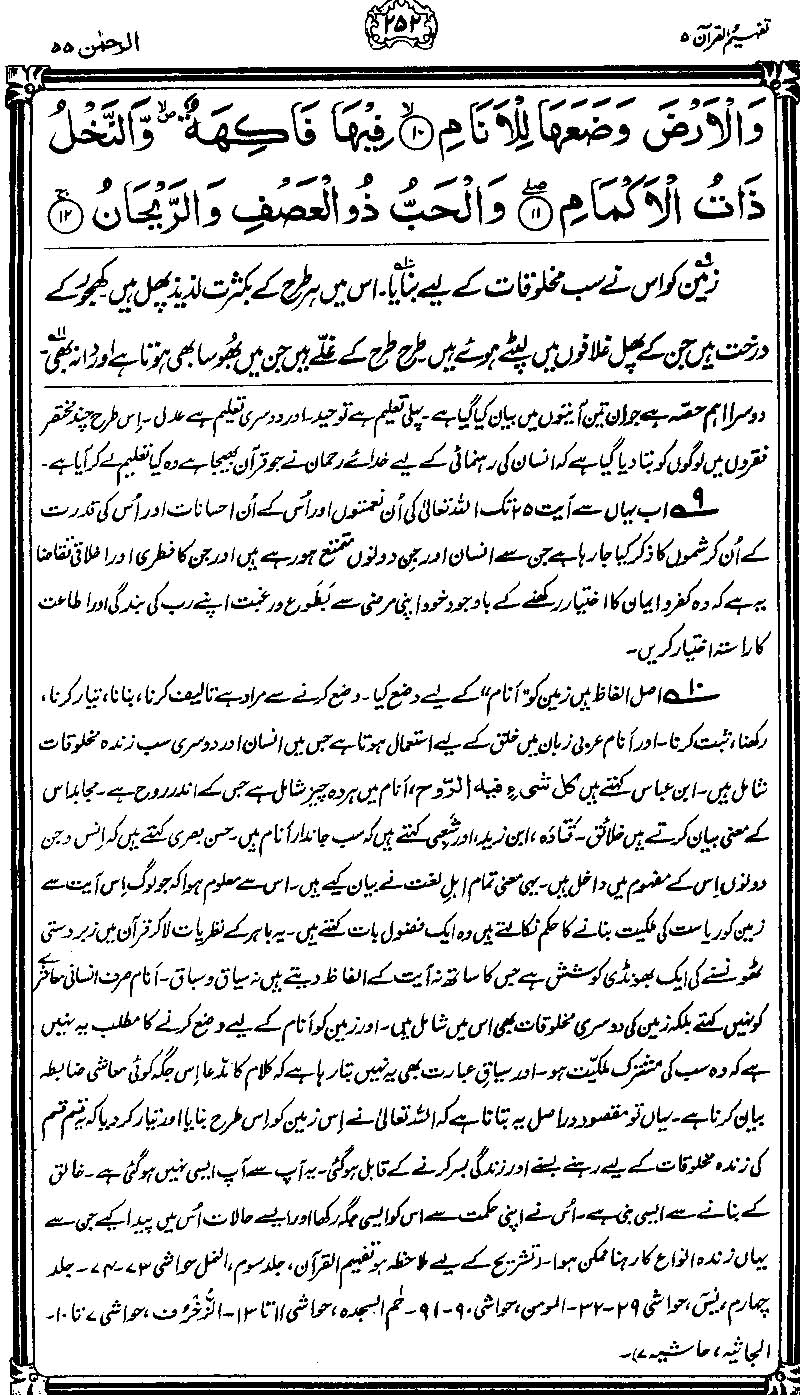 تفہیم القرآن ۵
۲۵۲
الرحمٰن ۵۵
وَالْاَرْضَ وَضَعَهَا لِلْاَنَامِ ۙ﴿۱۰﴾ فِيْهَا فَاكِهَةٌ ۪ۙ وَّالنَّخْلُ
ذَاتُ الْاَكْمَامِ ۖ﴿۱۱﴾ وَالْحَبُّ ذُو الْعَصْفِ وَالرَّيْحَانُ ۚ﴿۱۲﴾
زمین کو۹ اس نے سب مخلوقات کے لیے بنایا۱۰۔ اس میں ہر طرح کے بکثرت لذیذ پھل ہیں۔ کھجور کے
درخت ہیں جن کے پھل غلافوں میں لپٹے ہوئے ہیں۔ طرح طرح کے غلّے ہیں جن میں بھُوسا بھی ہوتا ہے اور دانہ بھی۱۱۔
دوسرا اہم حصّہ ہے جو ان تین آیتوں میں بیان کیا گیا ہے۔ پہلی تعلیم ہے توحید۔ اور دوسری تعلیم ہے عدل۔ اِس طرح چند مختصر
فقروں میں لوگوں کو بتا دیا گیا ہے کہ انسان کی رہنمائی کے لیے خدائے رحمان نے جو قرآن بھیجا ہے وہ کیا تعلیم لے کر آیا ہے۔
۹ اب یہاں سے آیت ۲۵ تک اللہ تعالیٰ کی اُن نعمتوں اور اُس کے اُن احسانات اور اُس کی قدرت
کے اُن کرشموں کا ذکر کیا جا رہا ہے جن سے انسان اور جن دونوں متمتع ہو رہے ہیں اور جن کا فطری اور اخلاقی تقاضا
یہ ہے کہ وہ کفر و ایمان کا اختیار رکھنے کے باوجود خود اپنی مرضی سے بَطَوع و رغبت اپنے رب کی بندگی اور اطاعت
کا راستہ اختیار کریں۔
۱۰ اصل الفاظ ہیں زمین کو ”اَنام“ کے لیے وضع کیا۔ وضع کرنے سے مراد ہے تالیف کرنا، بنانا، تیار کرنا،
رکھنا، ثبت کرنا۔ اور اَنام عربی زبان میں خلق کے لیے استعمال ہوتا ہے جس میں انسان اور دوسری سب زندہ مخلوقات
شامل ہیں۔ ابن عباس کہتے ہیں کل شیءٍ فیہ الرّوح، اَنام میں ہر وہ چیز شامل ہے جس کے اندر روح ہے۔ مجاہد اس
کے معنی بیان کرتے ہیں خلائق۔ قَتادہ، ابن زید، اور شعبی کہتے ہیں کہ سب جاندار اَنام ہیں۔ حسن بصری کہتے ہیں کہ اِنس و جن
دونوں اِس کے مفہوم میں داخل ہیں۔ یہی معنی تمام اہلِ لغت نے بیان کیے ہیں۔ اس سے معلوم ہوا کہ جو لوگ اِس آیت سے
زمین کو ریاست کی ملکیت بنانے کا حکم نکالتے ہیں وہ ایک فضول بات کہتے ہیں۔ یہ باہر کے نظریات لا کر قرآن میں زبردستی
ٹھونسنے کی ایک بھونڈی کوشش ہے جس کا ساتھ نہ آیت کے الفاظ دیتے ہیں نہ سیاق و سباق۔ اَنام صرف انسانی معاشرے
کو نہیں کہتے بلکہ زمین کی دوسری مخلوقات بھی اس میں شامل ہیں۔ اور زمین کو اَنام کے لیے وضع کرنے کا مطلب یہ نہیں
ہے کہ وہ سب کی مشترک ملکیّت ہو۔ اور سیاقِ عبارت بھی یہ نہیں بتا رہا ہے کہ کلام کا مدّعا اِس جگہ کوئی معاشی ضابطہ
بیان کرنا ہے۔ یہاں تو مقصود دراصل یہ بتانا ہے کہ اللہ تعالیٰ نے اِس زمین کو اِس طرح بنایا اور تیار کر دیا کہ یہ قسم قسم
کی زندہ مخلوقات کے لیے رہنے بسنے اور زندگی بسر کرنے کے قابل ہو گئی۔ یہ آپ سے آپ ایسی نہیں ہو گئی ہے۔ خالق
کے بنانے سے ایسی بنی ہے۔ اُس نے اپنی حکمت سے اس کو ایسی جگہ رکھا اور ایسے حالات اُس میں پیدا کیے جن سے
یہاں زندہ انواع کا رہنا ممکن ہوا۔ (تشریح کے لیے ملاحظہ ہو تفہیم القرآن، جلد سوم، النمل حواشی ۷۳-۷۴۔ جلد
چہارم، یٰسٓ، حواشی ۲۹-۳۲۔ المومن، حواشی ۹۰-۹۱۔ حٰم السجدہ، حواشی ۱۱ تا ۱۳۔ الزُّخرُف، حواشی ۷ تا ۱۰۔
الجاثیہ، حاشیہ ۷)۔